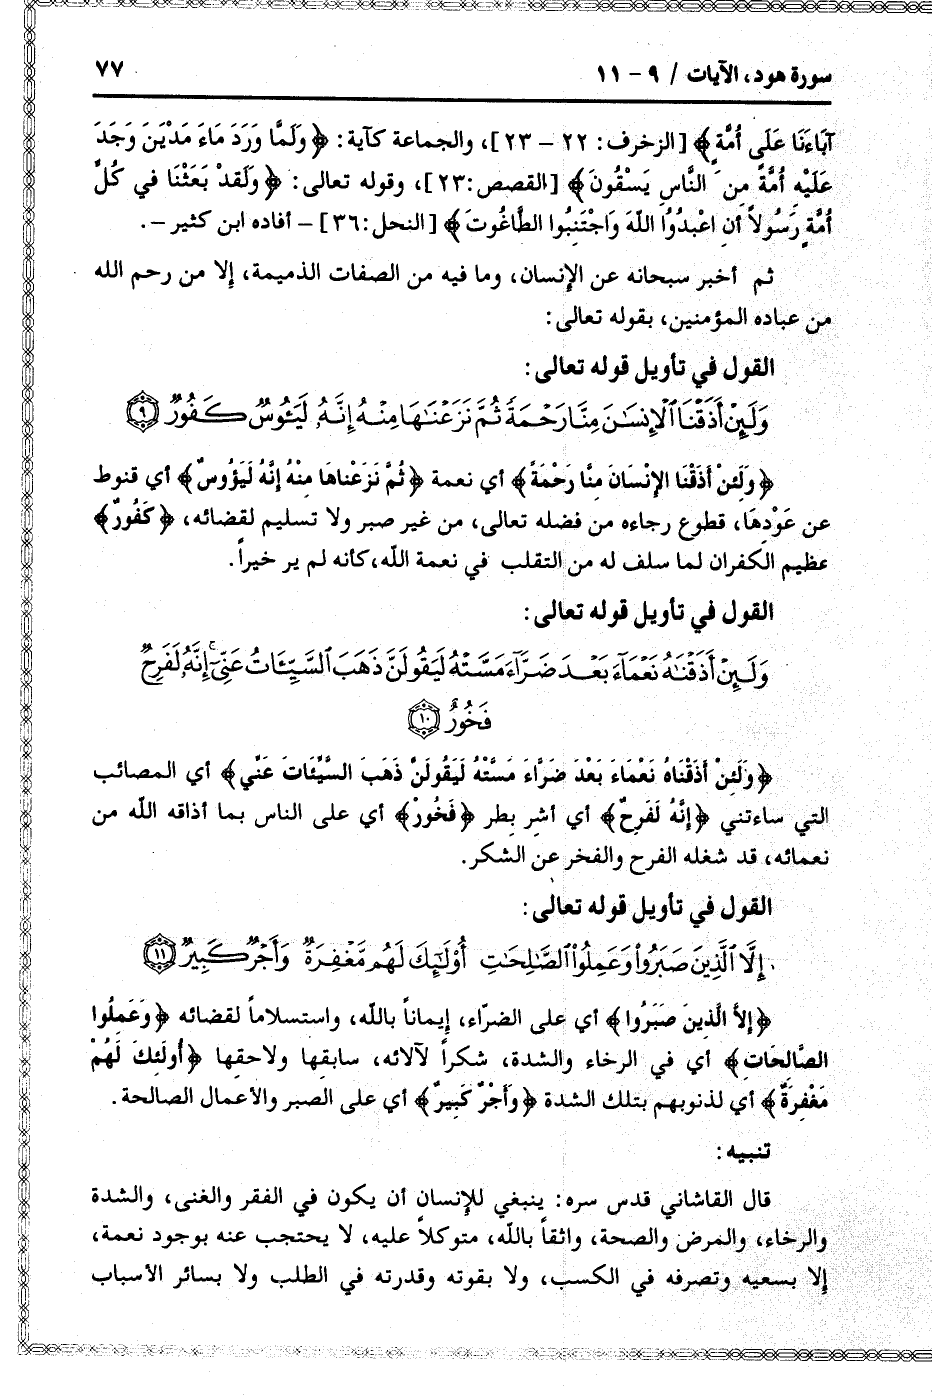 سورة هود، الآيات / ٩ – ١١ ٧٧
آبَاءَنَا عَلَى أُمَّةٍ﴾ [الزخرف: ٢٢ – ٢٣]، والجماعة كآية: ﴿وَلَمَّا وَرَدَ مَاءَ مَدْيَنَ وَجَدَ
عَلَيْهِ أُمَّةً مِنَ النَّاسِ يَسْقُونَ﴾ [القصص:٢٣]، وقوله تعالى: ﴿وَلَقَدْ بَعَثْنَا في كُلِّ
أُمَّةٍ رَسُولاً أَنِ اعْبُدُوا اللَّهَ وَاجْتَنِبُوا الطَّاغُوتَ﴾ [النحل:٣٦] – أفاده ابن كثير –.
ثم أخبر سبحانه عن الإنسان، وما فيه من الصفات الذميمة، إلا من رحم الله
من عباده المؤمنين، بقوله تعالى:
القول في تأويل قوله تعالى:
وَلَئِنْ أَذَقْنَا ٱلْإِنسَٰنَ مِنَّا رَحْمَةً ثُمَّ نَزَعْنَٰهَا مِنْهُ إِنَّهُۥ لَيَـُٔوسٌ كَفُورٌ ٩
﴿وَلَئِنْ أَذَقْنَا الإِنْسَانَ مِنَّا رَحْمَةً﴾ أي نعمة ﴿ثُمَّ نَزَعْنَاهَا مِنْهُ إِنَّهُ لَيَؤُوسٌ﴾ أي قنوط
عن عَوْدِهَا، قطوع رجاءه من فضله تعالى، من غير صبر ولا تسليم لقضائه، ﴿كَفُورٌ﴾
عظيم الكفران لما سلف له من التقلب في نعمة الله،كأنه لم ير خيراً.
القول في تأويل قوله تعالى:
وَلَئِنْ أَذَقْنَٰهُ نَعْمَآءَ بَعْدَ ضَرَّآءَ مَسَّتْهُ لَيَقُولَنَّ ذَهَبَ ٱلسَّيِّـَٔاتُ عَنِّىٓ إِنَّهُۥ لَفَرِحٌ
فَخُورٌ ١٠
﴿وَلَئِنْ أَذَقْنَاهُ نَعْمَاءَ بَعْدَ ضَرَّاءَ مَسَّتْهُ لَيَقُولَنَّ ذَهَبَ السَّيِّئَاتُ عَنِّي﴾ أي المصائب
التي ساءتني ﴿إِنَّهُ لَفَرِحٌ﴾ أي أشر بطر ﴿فَخُورٌ﴾ أي على الناس بما أذاقه الله من
نعمائه، قد شغله الفرح والفخر عن الشكر.
القول في تأويل قوله تعالى:
إِلَّا ٱلَّذِينَ صَبَرُوا۟ وَعَمِلُوا۟ ٱلصَّٰلِحَٰتِ أُو۟لَٰٓئِكَ لَهُم مَّغْفِرَةٌ وَأَجْرٌ كَبِيرٌ ١١
﴿إِلاَّ الَّذِينَ صَبَرُوا﴾ أي على الضرّاء، إيماناً بالله، واستسلاماً لقضائه ﴿وَعَمِلُوا
الصَّالِحَاتِ﴾ أي في الرخاء والشدة، شكراً لآلائه، سابقها ولاحقها ﴿أُولَئِكَ لَهُمْ
مَغْفِرَةٌ﴾ أي لذنوبهم بتلك الشدة ﴿وَأَجْرٌ كَبِيرٌ﴾ أي على الصبر والأعمال الصالحة.
تنبيه:
قال القاشاني قدس سره: ينبغي للإنسان أن يكون في الفقر والغنى، والشدة
والرخاء، والمرض والصحة، واثقاً بالله، متوكلاً عليه، لا يحتجب عنه بوجود نعمة،
إلا بسعيه وتصرفه في الكسب، ولا بقوته وقدرته في الطلب ولا بسائر الأسباب